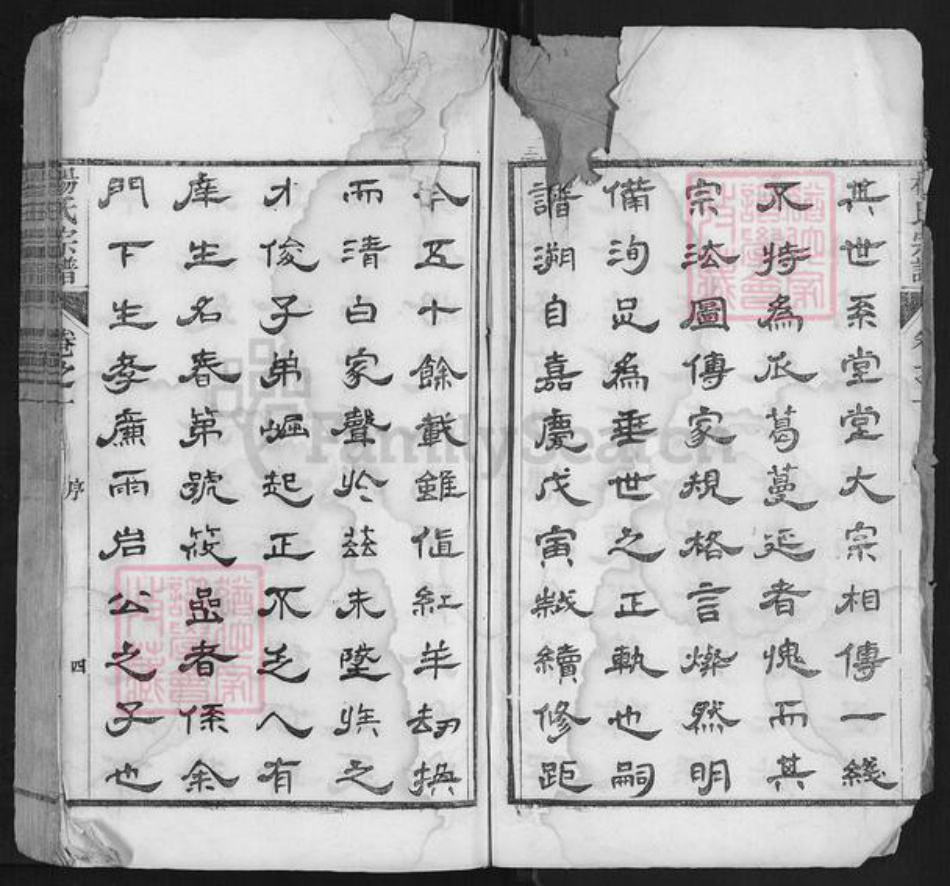 其世系堂堂大宗相傳一綫
不特為瓜葛蔓延者愧而其
宗法圖傳家規格言燦然明
備洵足為垂世之正軌也嗣
譜溯自嘉慶戊寅越續修距
今五十餘載雖值紅羊劫換
而清白家聲於茲未墜族之
才俊子弟崛起正不乏人有
庠生名春第號筱喦者係余
門下生孝廉雨岩公之子也
楊氏宗譜
卷之一
序
四
FamilySearch